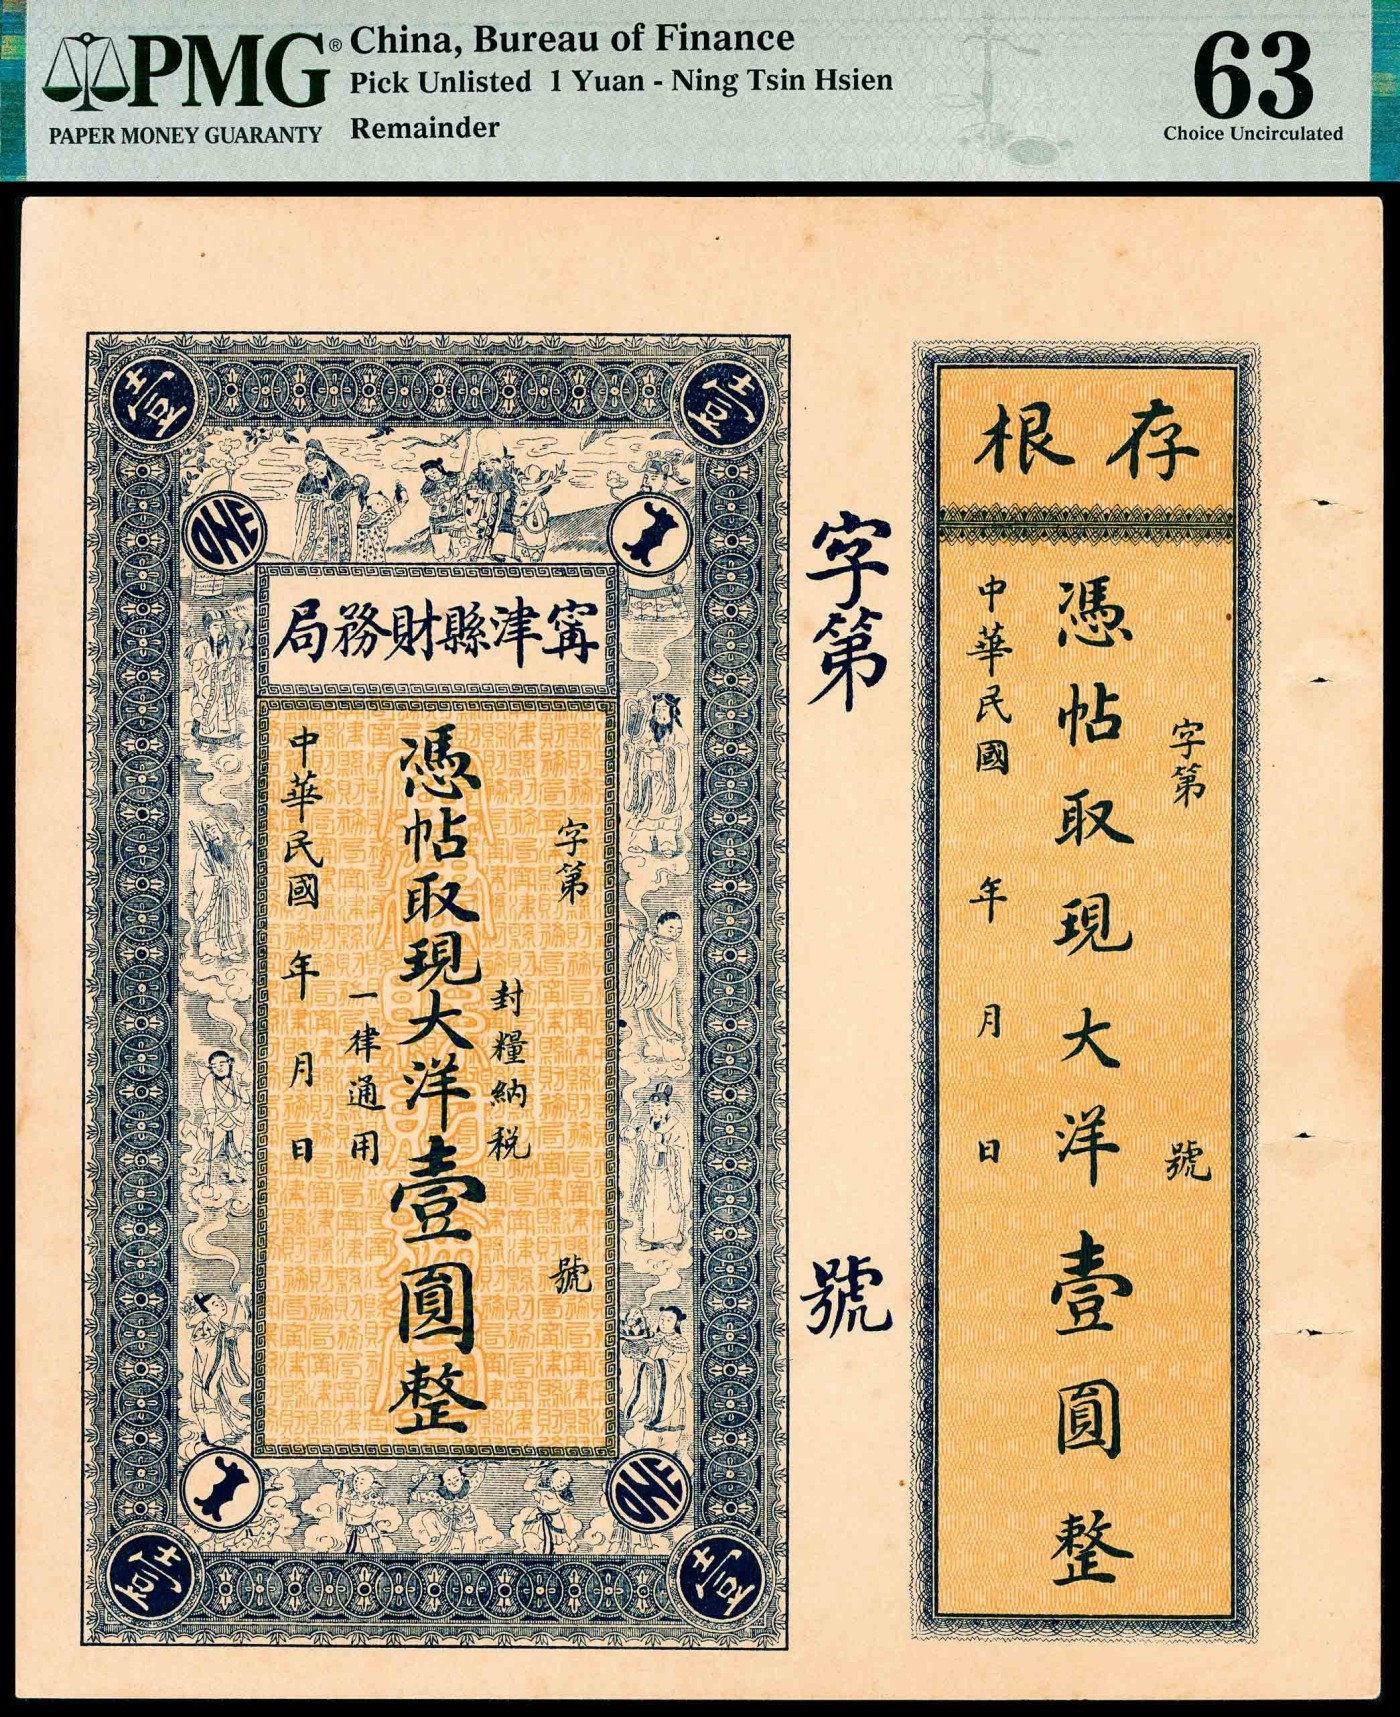 PMG®
PAPER MONEY GUARANTY
China, Bureau of Finance
Pick Unlisted 1 Yuan - Ning Tsin Hsien
Remainder
63
Choice Uncirculated
壹
壹
ONE
局務財縣津甯
字第
號
封糧納税
憑帖取現大洋壹圓整
一律通用
中華民國 年 月 日
ONE
壹
壹
字第
號
根存
字第
號
憑帖取現大洋壹圓整
中華民國 年 月 日